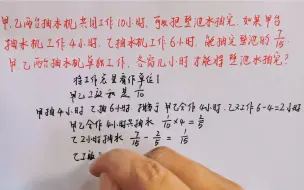 甲、乙两台抽水机共同工作10小时,可以把整池水抽完。如果甲台
抽水机工作4小时,乙抽水机工作6小时,能抽完整池的7/15
甲乙两台抽水机单独工作,各需几小时才能将整池水抽完?
将工作总量看作单位1
甲乙工效和是1/10
甲抽4小时 乙抽6小时 相当于 甲乙合作4小时 乙又工作6-4=2小时
甲乙合作4小时共抽水 1/10×4=2/5
乙2小时抽水 7/15-2/5=1/15
乙工效=